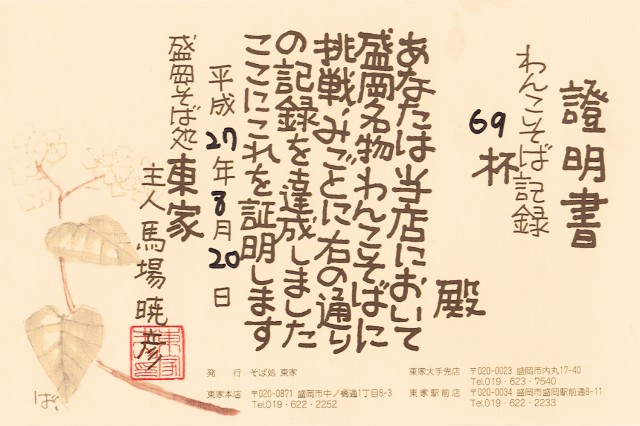 證明書
わんこそば記録
69杯
殿
あなたは当店において
盛岡名物わんこそばに
挑戦、みごとに右の通り
の記録を達成しました
ここにこれを証明します
平成27年8月20日
盛岡そば処 東家
主人 馬場暁彦
東家
発行 そば処 東家
東家本店 〒020-0871 盛岡市中ノ橋通1丁目8-3
Tel.019・622・2252
東家大手先店 〒020-0023 盛岡市内丸17-40
Tel.019・623・7540
東家駅前店 〒020-0034 盛岡市盛岡駅前通8-11
Tel.019・622・2233
ば、